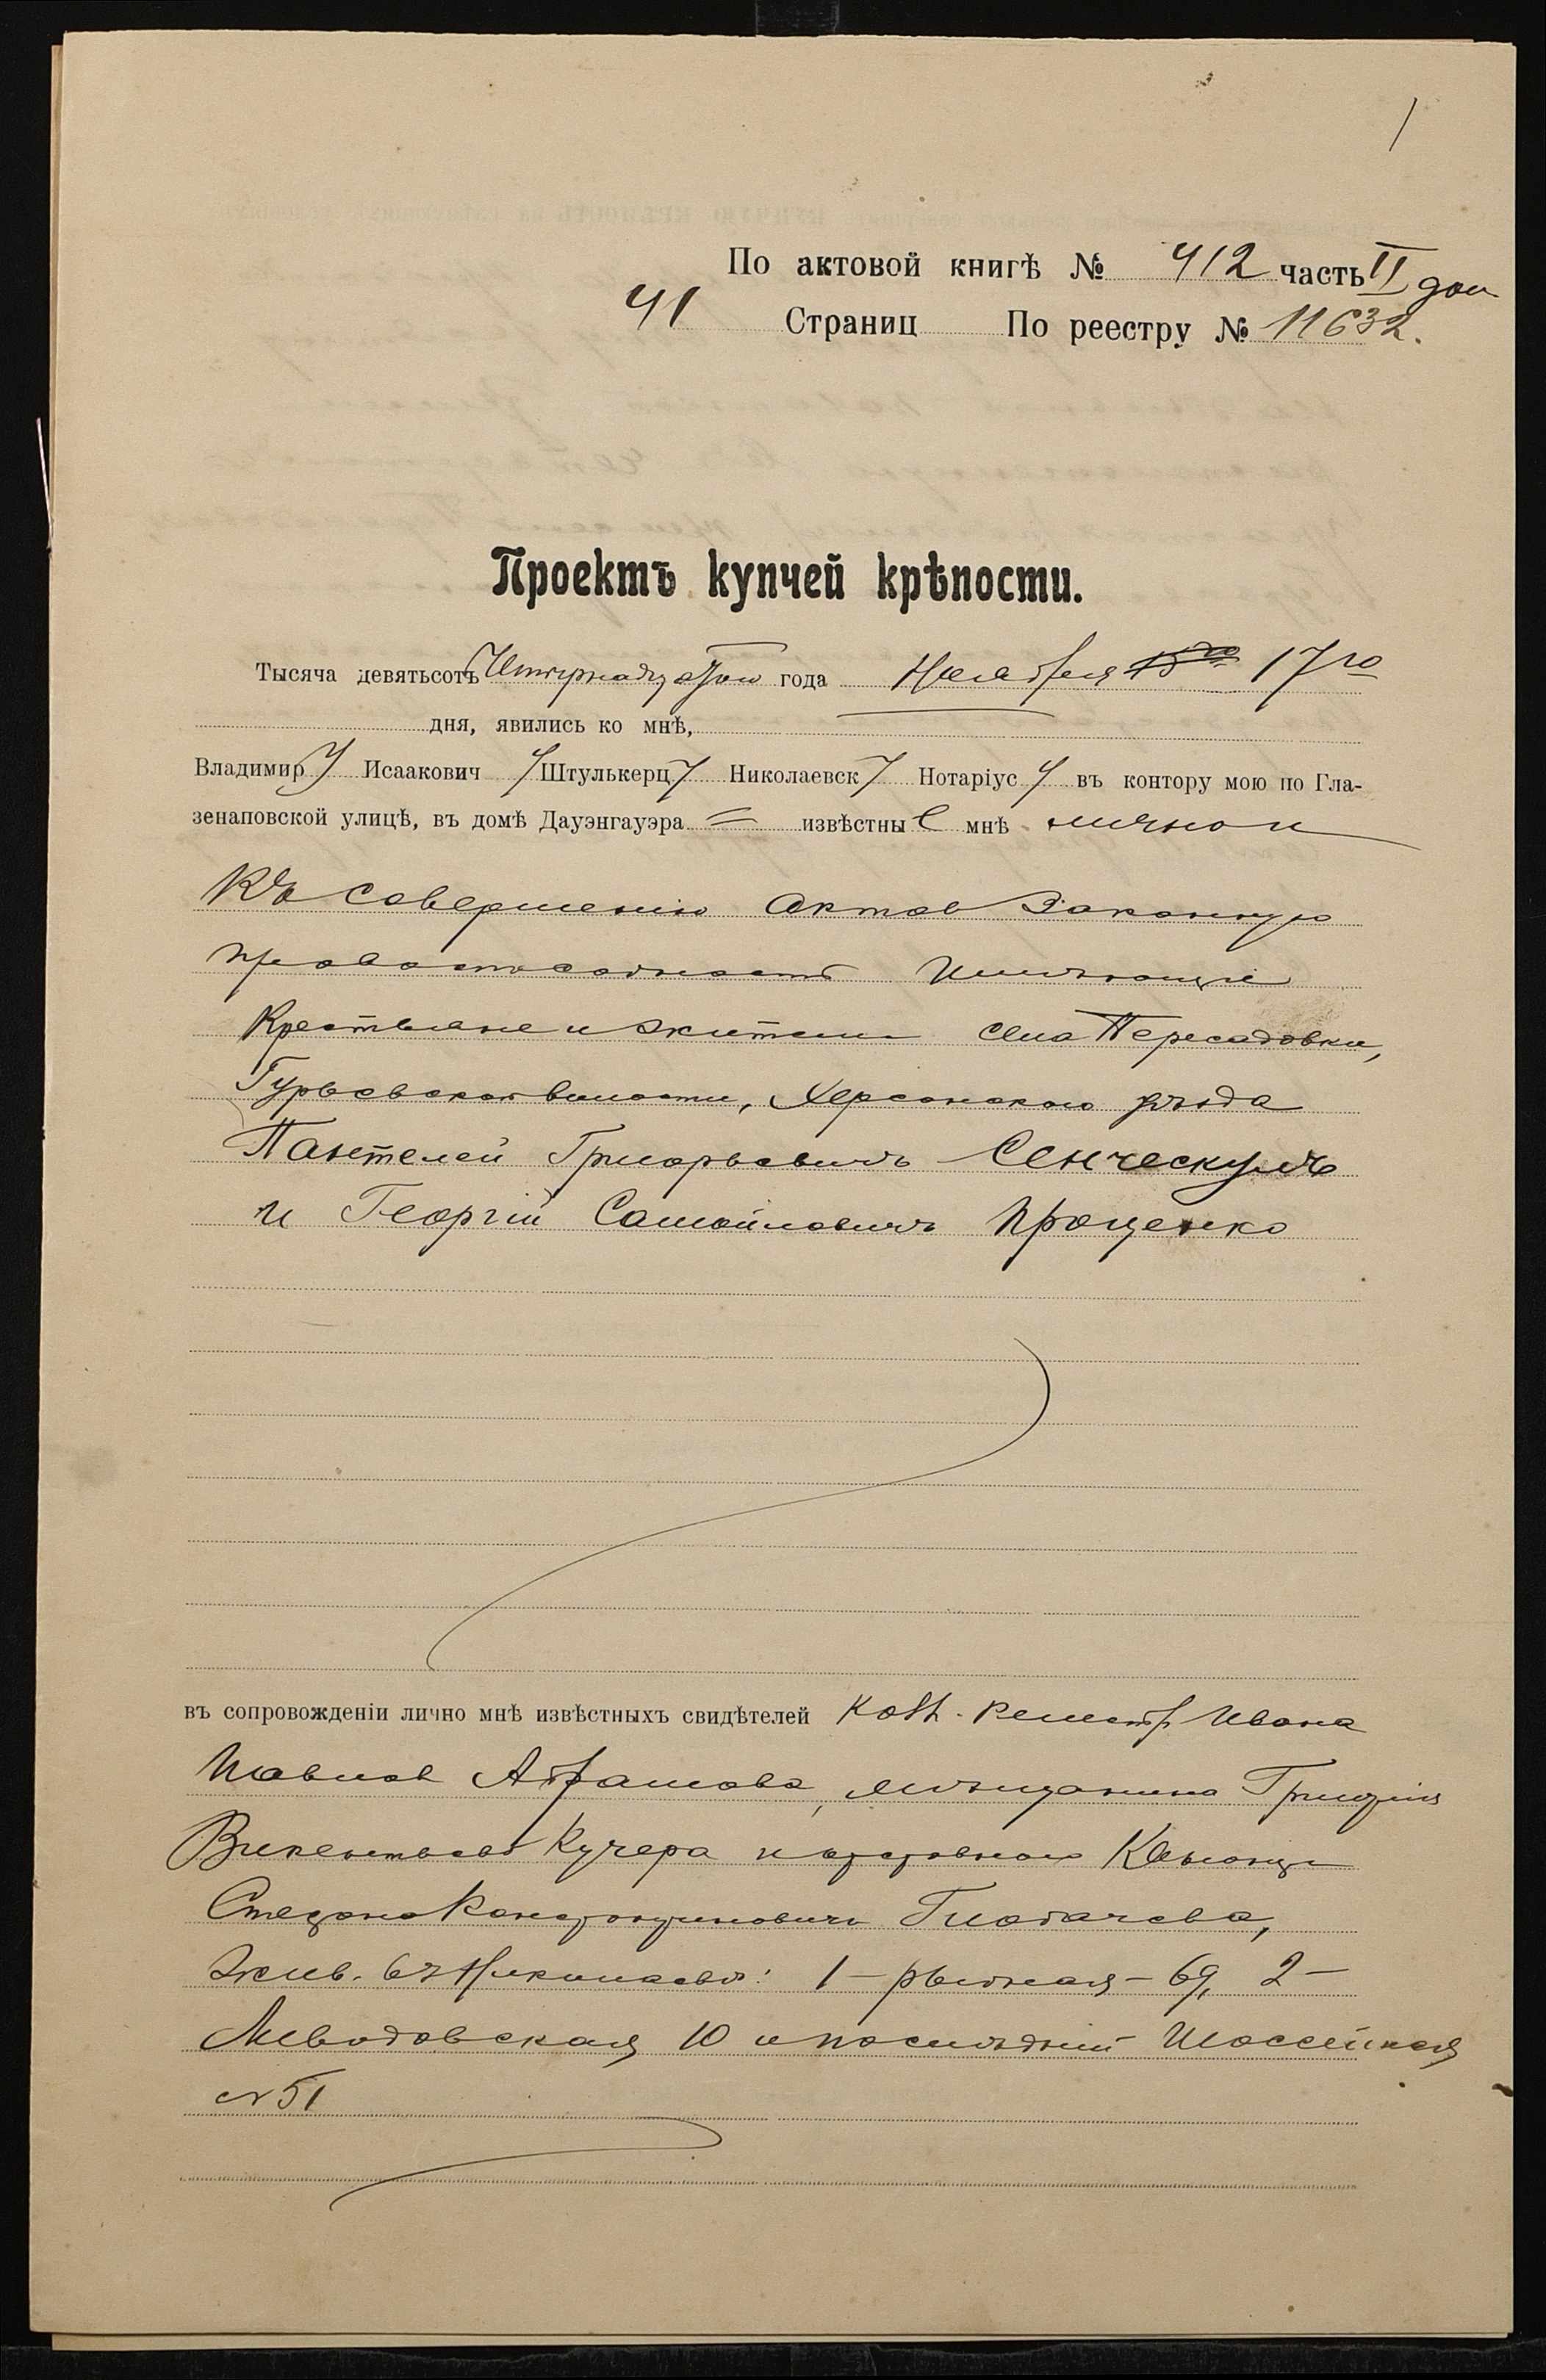 1
По актовой книгѣ № 412 часть II доп
41 Страниц По реестру № 11632.
Проектъ купчей крѣпости.
Тысяча девятьсотъ года Ноября 17го
дня, явились ко мнѣ,
Владимиру Исааковичу Штулькерцу Николаевск Нотаріусу въ контору мою по Гла-
зенаповской улицѣ, въ домѣ Дауэнгауэра = извѣстные мнѣ лично и
Къ совершенію актов законную
правоспособность имѣющіе
Крестьяне и жители села Пересадовки,
Гурьевской волости, Херсонского уѣзда
Пантелей Григорьевичъ Сенческулъ
и Георгій Самойловичъ Проценко
въ сопровожденіи лично мнѣ извѣстныхъ свидѣтелей Колл. Регистр Ивана
Павлов Абрамова, мѣщанина
Викентьева Кучера и
Степана Гнотачева,
жив. въ Николаевѣ: 1 – рыбная – 69, 2 –
10 и послѣдній Шоссейная
№ 51